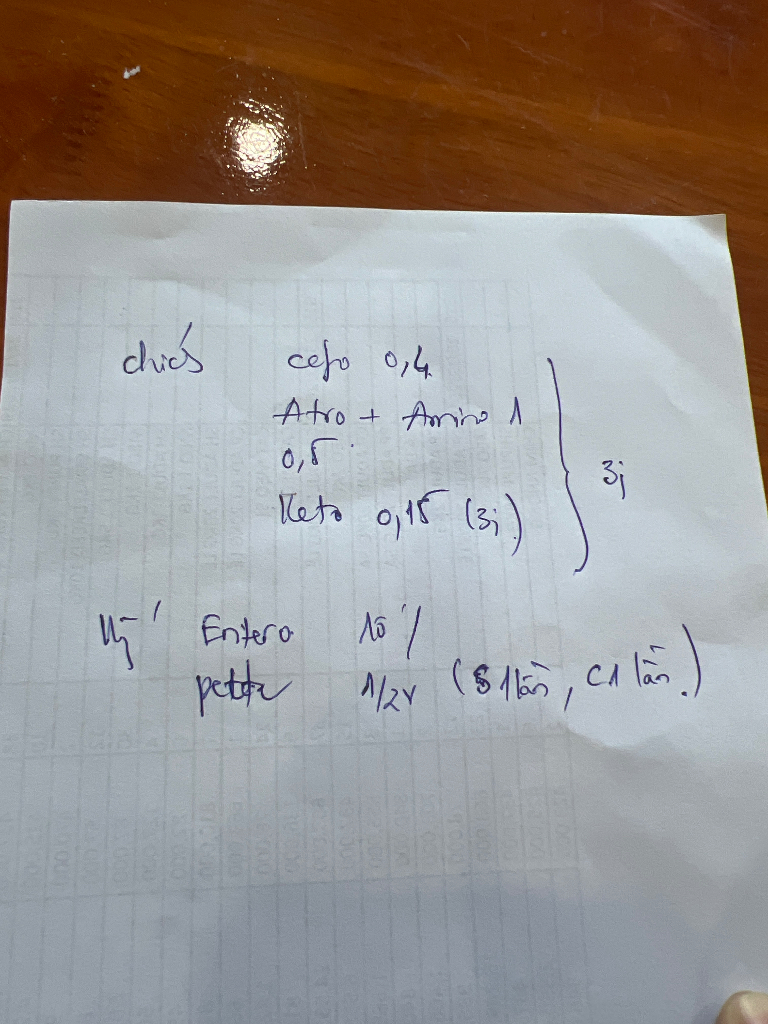 chiều cefo 0,4
Atro + Amino 1
0,5
Keto 0,15 (3j)
3j
Entero 10
1/2v (S 1 lần, C 1 lần.)